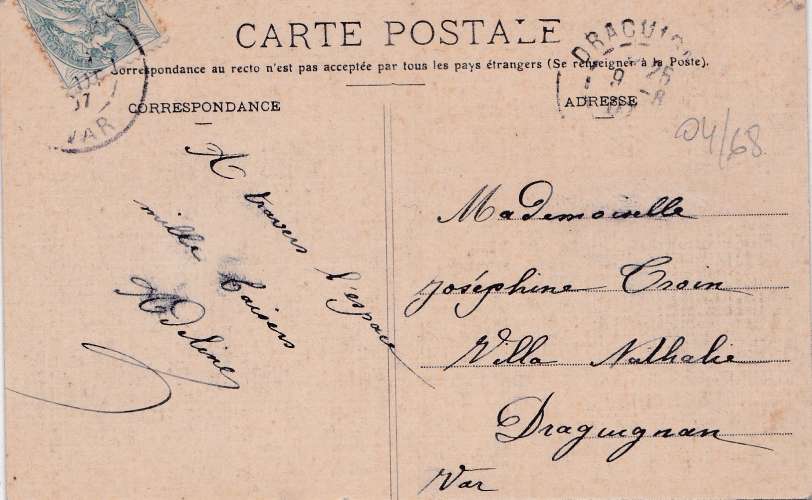 CARTE POSTALE
Correspondance au recto n'est pas acceptée par tous les pays étrangers (Se renseigner à la Poste).
CORRESPONDANCE
A travers l'espace
mille baisers
Adeline
VAR
07
DRAGUIGN
ADRESSE
04/68
Mademoiselle
Joséphine Croin
Villa Nathalie
Draguignan
Var